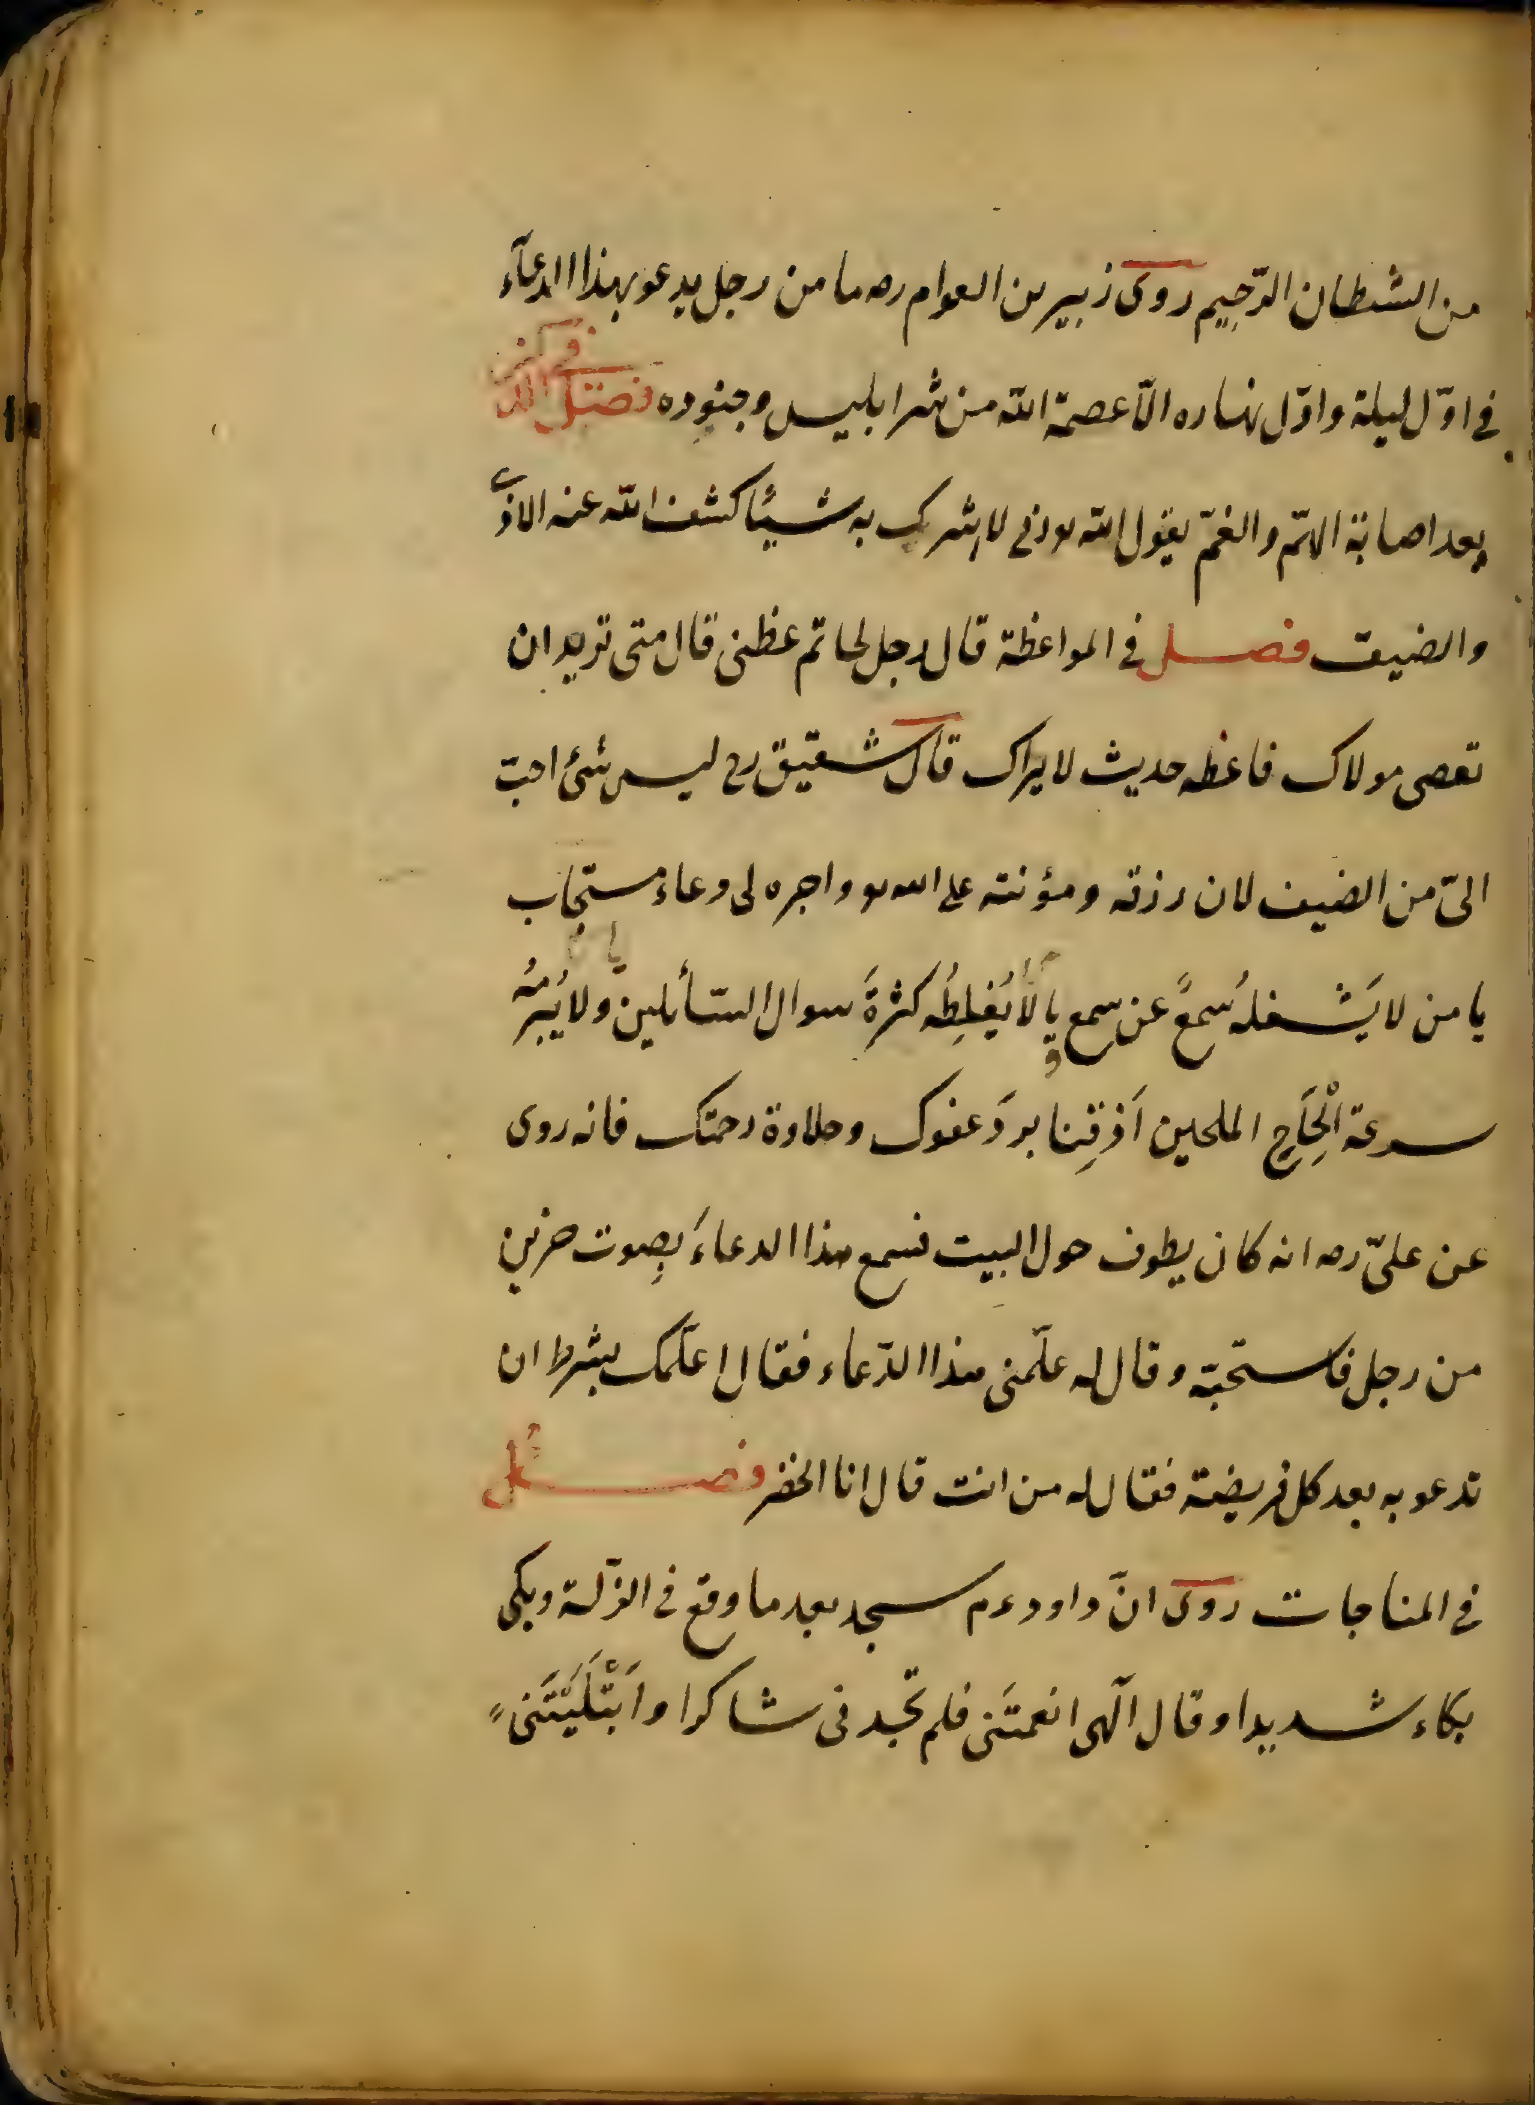 من الشطان الرّجِيم روى زبير بن العوام رضه ما من رجل يدعو بهذا الدعآء
في اوّل ليلة واوّل نهاره الّا عصمة الله من شر ابليس وجنوده فصل
بعد اصابة الهمّ والغمّ يقول الله لا اشرك به شيئًا كشف الله عنه الاذى
والضيق فصل في المواعظة قال رجل لحاتم عظنى قال متى تريد ان
تعصى مولاك فاعظه حديث لا يراك قال شقيق رح ليس شئ احبّ
الىّ من الضيف لان رزقه ومؤنته على الله واجره لى دعاء مستجاب
يا من لا يَشغلهُ سَمعً عن سمع و يا لا يُغلِطُه كثرةَ سوال السّأئلين ولا يُبْرِمُه
سرعة اِلْحَاحِ الملحين اَذِقِنا بردَ عفوك وحلاوة رحمتك فانه روى
عن علىّ رضه انه كان يطوف حول البيت فسمع هذا الدعاءَ بِصوت حزين
من رجل فاستحبّه وقال له علّمنى هذا الدّعاء فقال اعلّمك بشرط ان
تدعو به بعد كل فريضة فقال له من انت قال انا الخضر فصُل
في المناجات روى انّ داود عم سجد بعد ما وقع في الزلّة وبكى
بكاء شديدا وقال آلهى انعمتَنى فلم تجدنى شاكرا واَبْتَلَيْتَنى